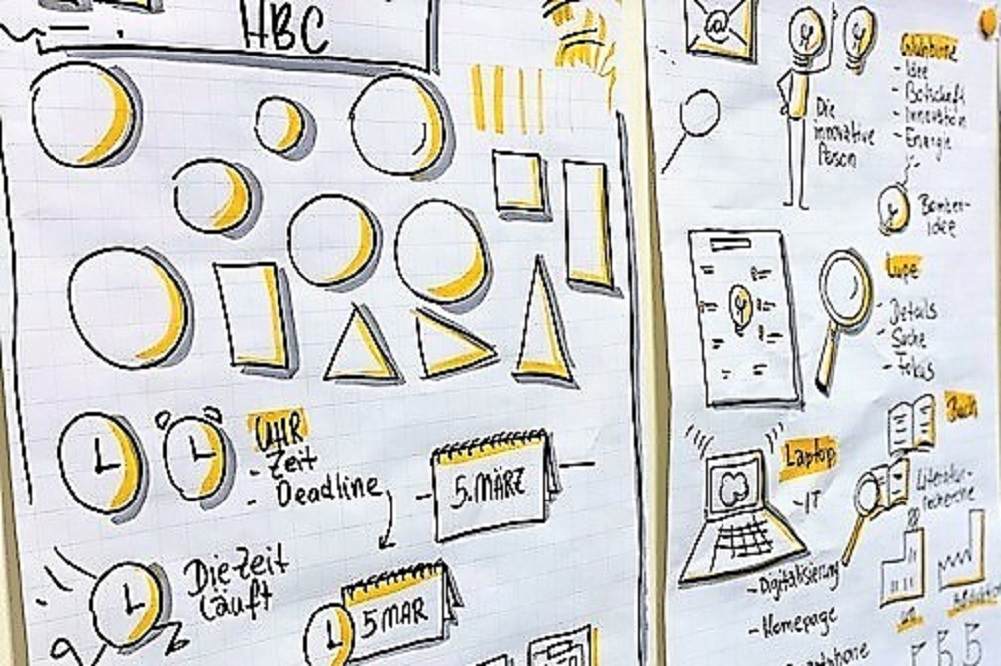 HBC
UHR
- Zeit
- Deadline
5. MÄRZ
Die Zeit
läuft
5 MAR
@
Die
innovative
Person
Glühbirne
- Idee
- Botschaft
- Innovation
- Energie
Bomben-
idee
Lupe
- Details
- Suche
- Fokus
Buch
Literatur-
recherche
Laptop
- IT
- Digitalisierung
- Homepage